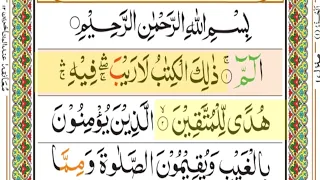 بِسْمِ اللّٰهِ الرَّحْمٰنِ الرَّحِيْمِ
الٓمّٓ ۚ ذٰلِكَ الْكِتٰبُ لَا رَيْبَ ۛ فِيْهِ ۛ
هُدًى لِّلْمُتَّقِيْنَ ۙ الَّذِيْنَ يُؤْمِنُوْنَ
بِالْغَيْبِ وَيُقِيْمُوْنَ الصَّلٰوةَ وَمِمَّا